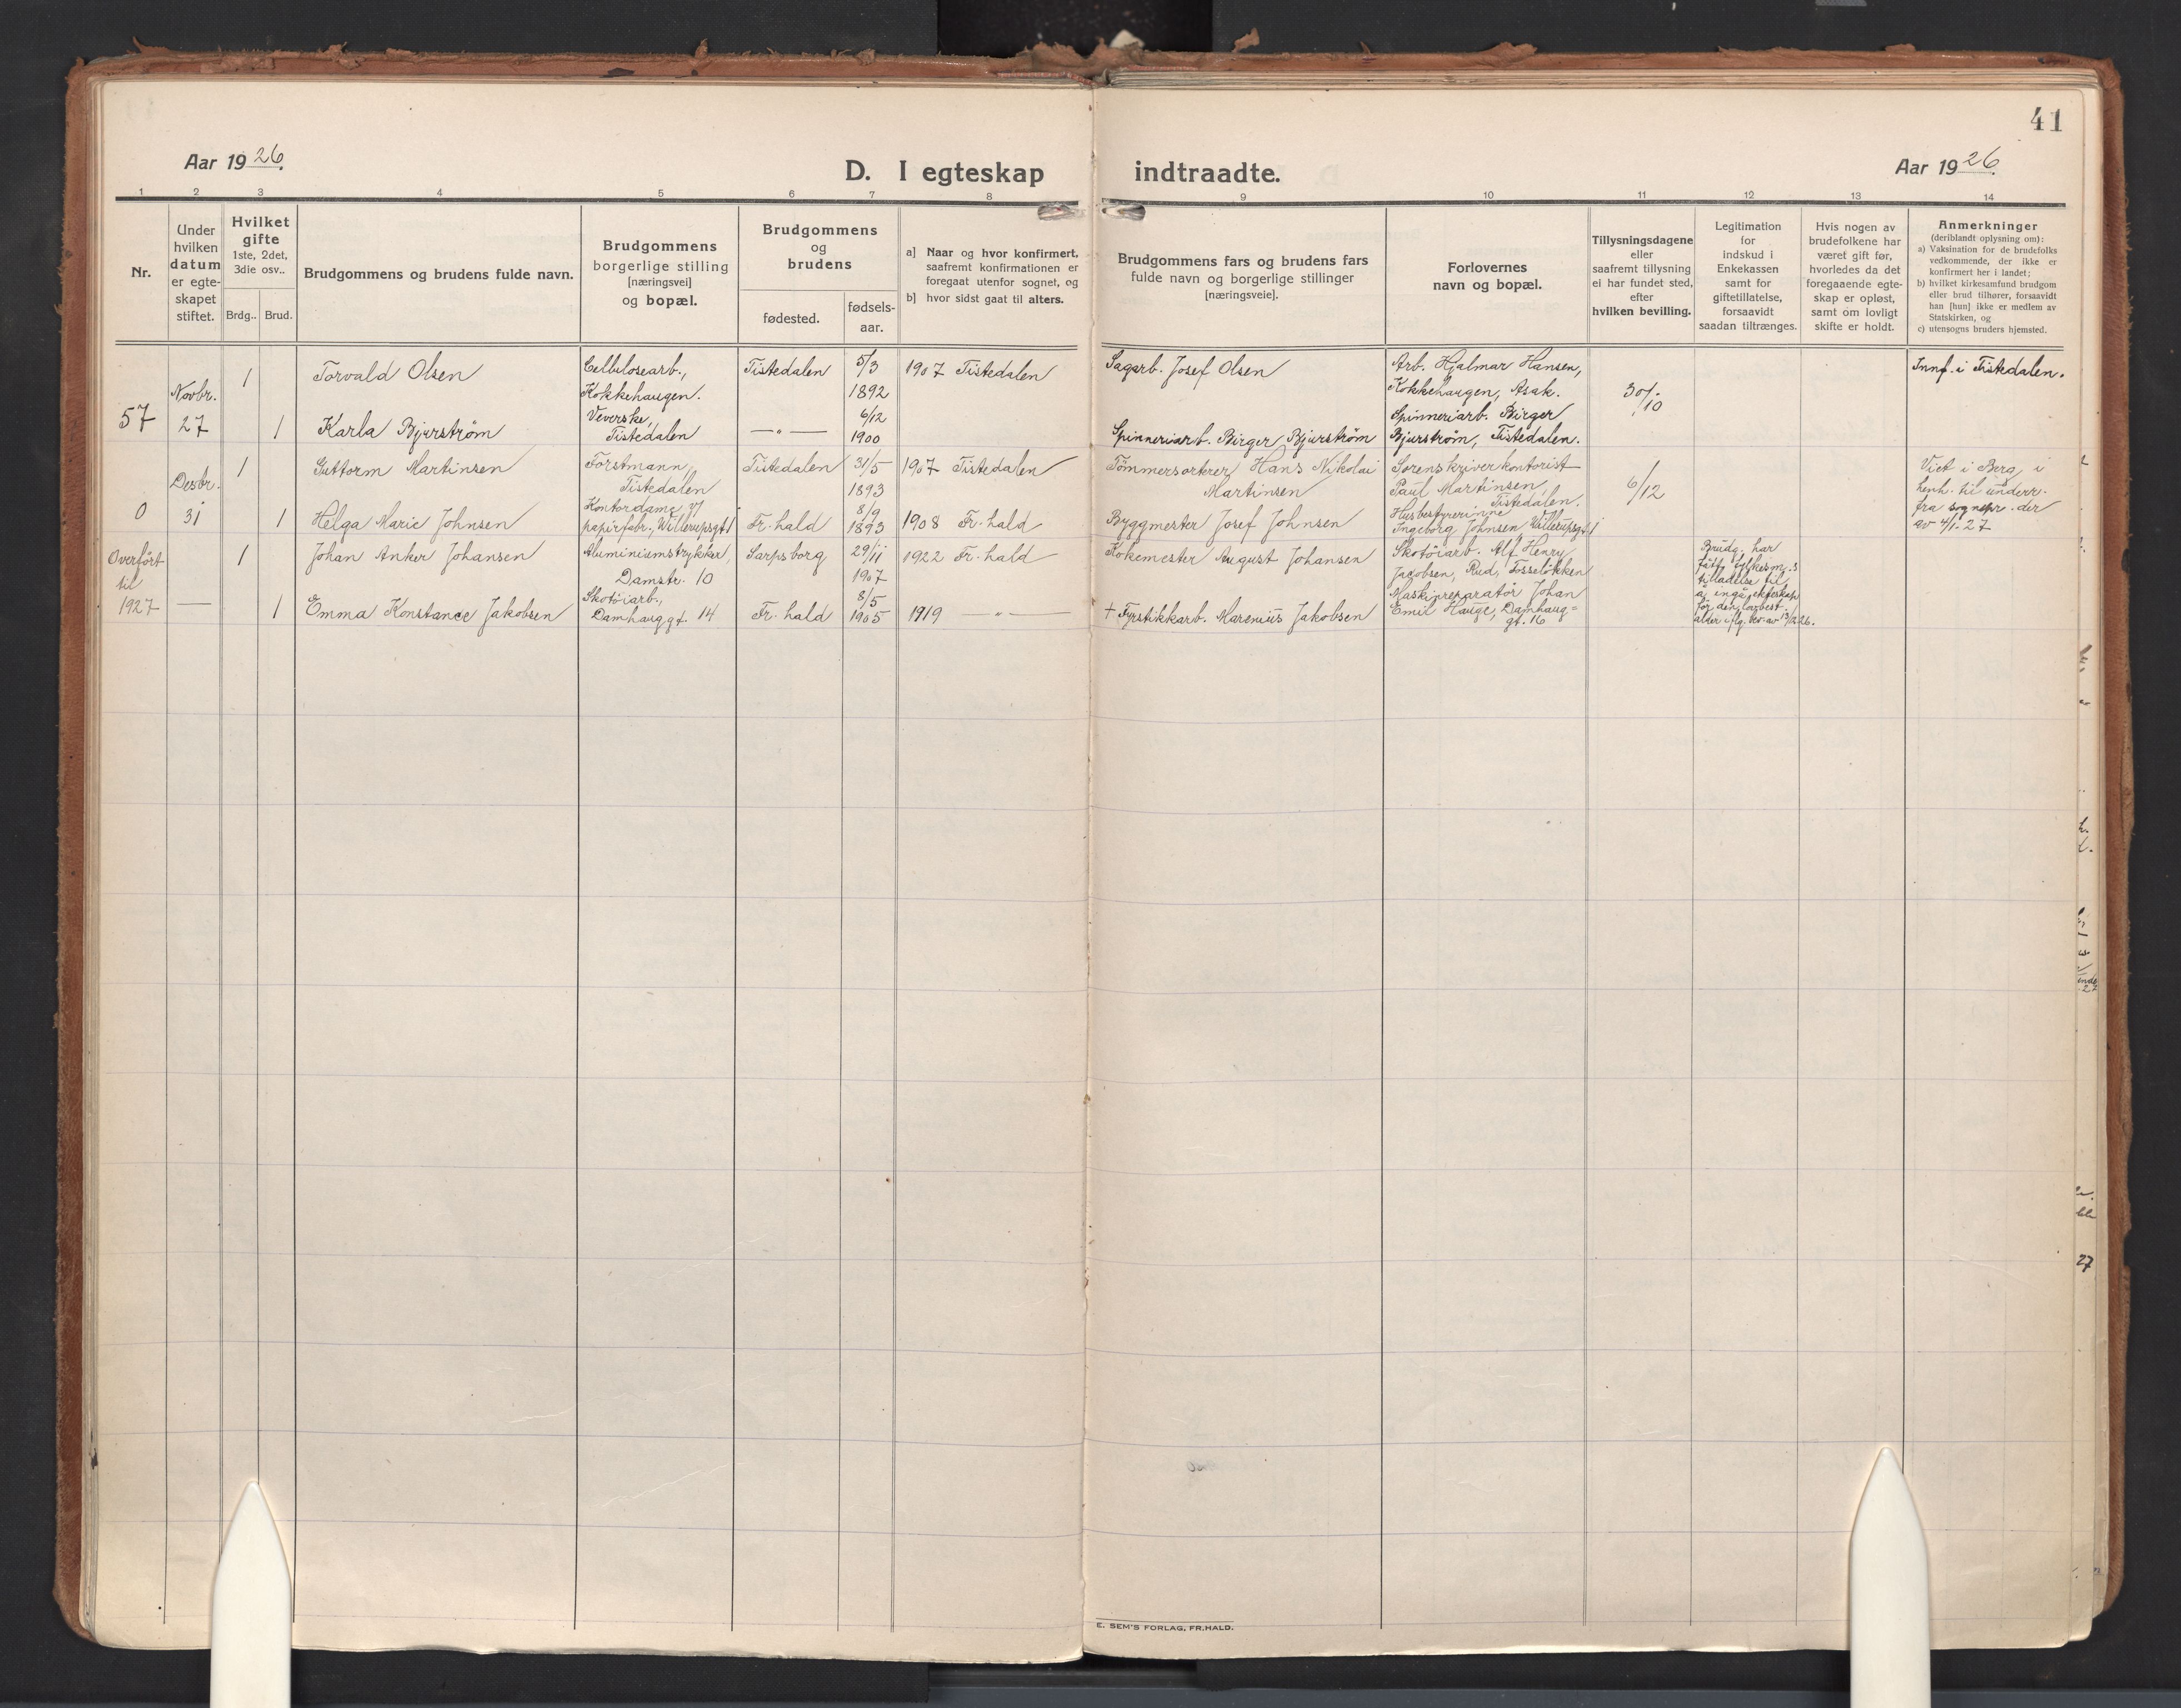 41
Aar 1926.
D. I egteskap indtraadte.
Aar 1926.
1 2 3 4 5 6 7 8 9 10 11 12 13 14
Nr.
Under
hvilken
datum
er egte-
skapet
stiftet.
Hvilket
gifte
1ste, 2det,
3die osv..
Brdg.. Brud.
Brudgommens og brudens fulde navn.
Brudgommens
borgerlige stilling
[næringsvei]
og bopæl.
Brudgommens
og
brudens
fødested.
fødsels-
aar.
a] Naar og hvor konfirmert,
saafremt konfirmationen er
foregaat utenfor sognet, og
b] hvor sidst gaat til alters.
Brudgommens fars og brudens fars
fulde navn og borgerlige stillinger
[næringsveie].
Forlovernes
navn og bopæl.
Tillysningsdagene
eller
saafremt tillysning
ei har fundet sted,
efter
hvilken bevilling.
Legitimation
for
indskud i
Enkekassen
samt for
giftetillatelse,
forsaavidt
saadan tiltrænges.
Hvis nogen av
brudefolkene har
været gift før,
hvorledes da det
foregaaende egte-
skap er opløst,
samt om lovligt
skifte er holdt.
Anmerkninger
(deriblandt oplysning om):
a) Vaksination for de brudefolks
vedkommende, der ikke er
konfirmert her i landet;
b) hvilket kirkesamfund brudgom
eller brud tilhører, forsaavidt
han [hun] ikke er medlem av
Statskirken, og
c) utensogns bruders hjemsted.
57
Novbr.
27
1
Torvald Olsen
Cellulosearb.,
Kokkehaugen.
Tistedalen
5/3
1892
1907 Tistedalen
Sagarb. Josef Olsen
Arb. Hjalmar Hansen,
Kokkehaugen, Asak.
30/10
Innf. i Tistedalen.
1
Karla Bjurstrøm
Veverske,
Tistedalen
— " —
6/12
1900
Spinneriarb. Birger Bjurstrøm
Spinneriarb. Birger
Bjurstrøm, Tistedalen.
0
Desbr.
31
1
Guttorm Martinsen
Forstmann,
Tistedalen
Tistedalen
31/5
1893
1907 Tistedalen
Tömmersorterer Hans Nikolai
Martinsen
Sorenskriverkontorist
Paul Martinsen,
Tistedalen.
6/12
Viet i Berg i
henh. til underr.
fra sognepr. der
av 4/1-27
1
Helga Marie Johnsen
Kontordame v/
papirfabr., Willerupsgt. 1
Fr.hald
8/9
1893
1908 Fr.hald
Byggmester Josef Johnsen
Husbestyrerinne
Ingeborg Johnsen Willerupsgt. 1
Overført
til
1927
1
Johan Anker Johansen
Aluminiumstrykker,
Damstr. 10
Sarpsborg
29/11
1907
1922 Fr.hald
Kokemester August Johansen
Skotöiarb. Alf Henry
Jacobsen, Rud, Fosseløkken
Brudg. har
fått fylkesm.s
tilladelse til
å inngå ekteskap
før den lovbest.
alder iflg. bev. av 13/12 26.
—
1
Emma Konstance Jakobsen
Skotöiarb.,
Damhauggt. 14
Fr.hald
8/5
1905
1919 — " —
+ Fyrstikkarb. Marenius Jakobsen
Maskinreparatör Johan
Emil Hauge, Damhaug=
gt. 16
27
E. SEM'S FORLAG, FR.HALD.